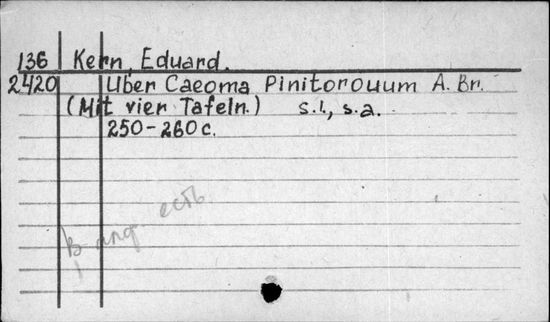 136 Kern, Eduard.
2420 Uber Caeoma Pinitorouum A. Br.
(Mit vier Tafeln.) s.l., s.a.
250-260 c.
есть
В